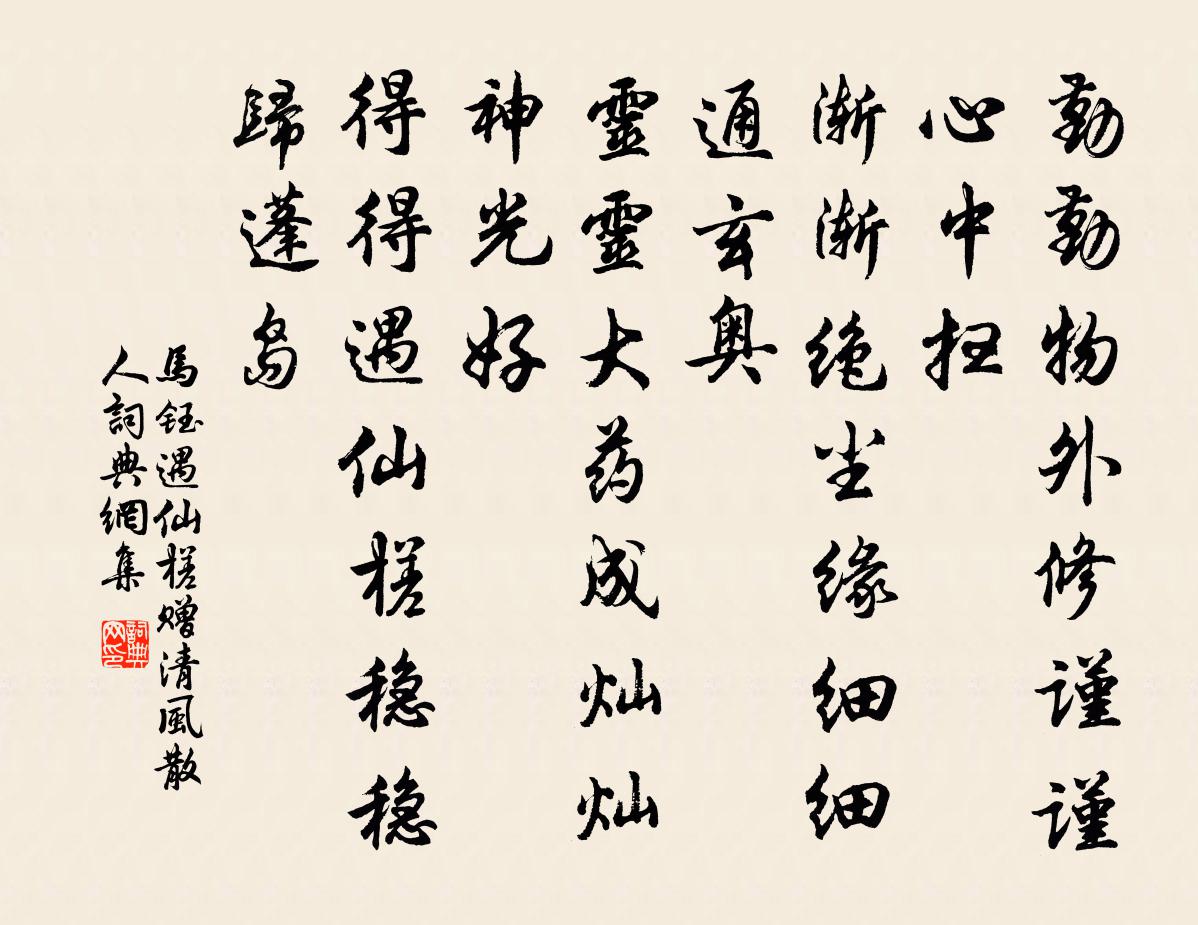 勤勤物外修谨谨
心中扭
渐渐绝尘缘细细
通玄奥
靈靈大药成灿灿
神光好
得得遇仙槎稳稳
歸蓬岛
馬鈺遇仙槎赠清風散
人詞典網集
詞典网印